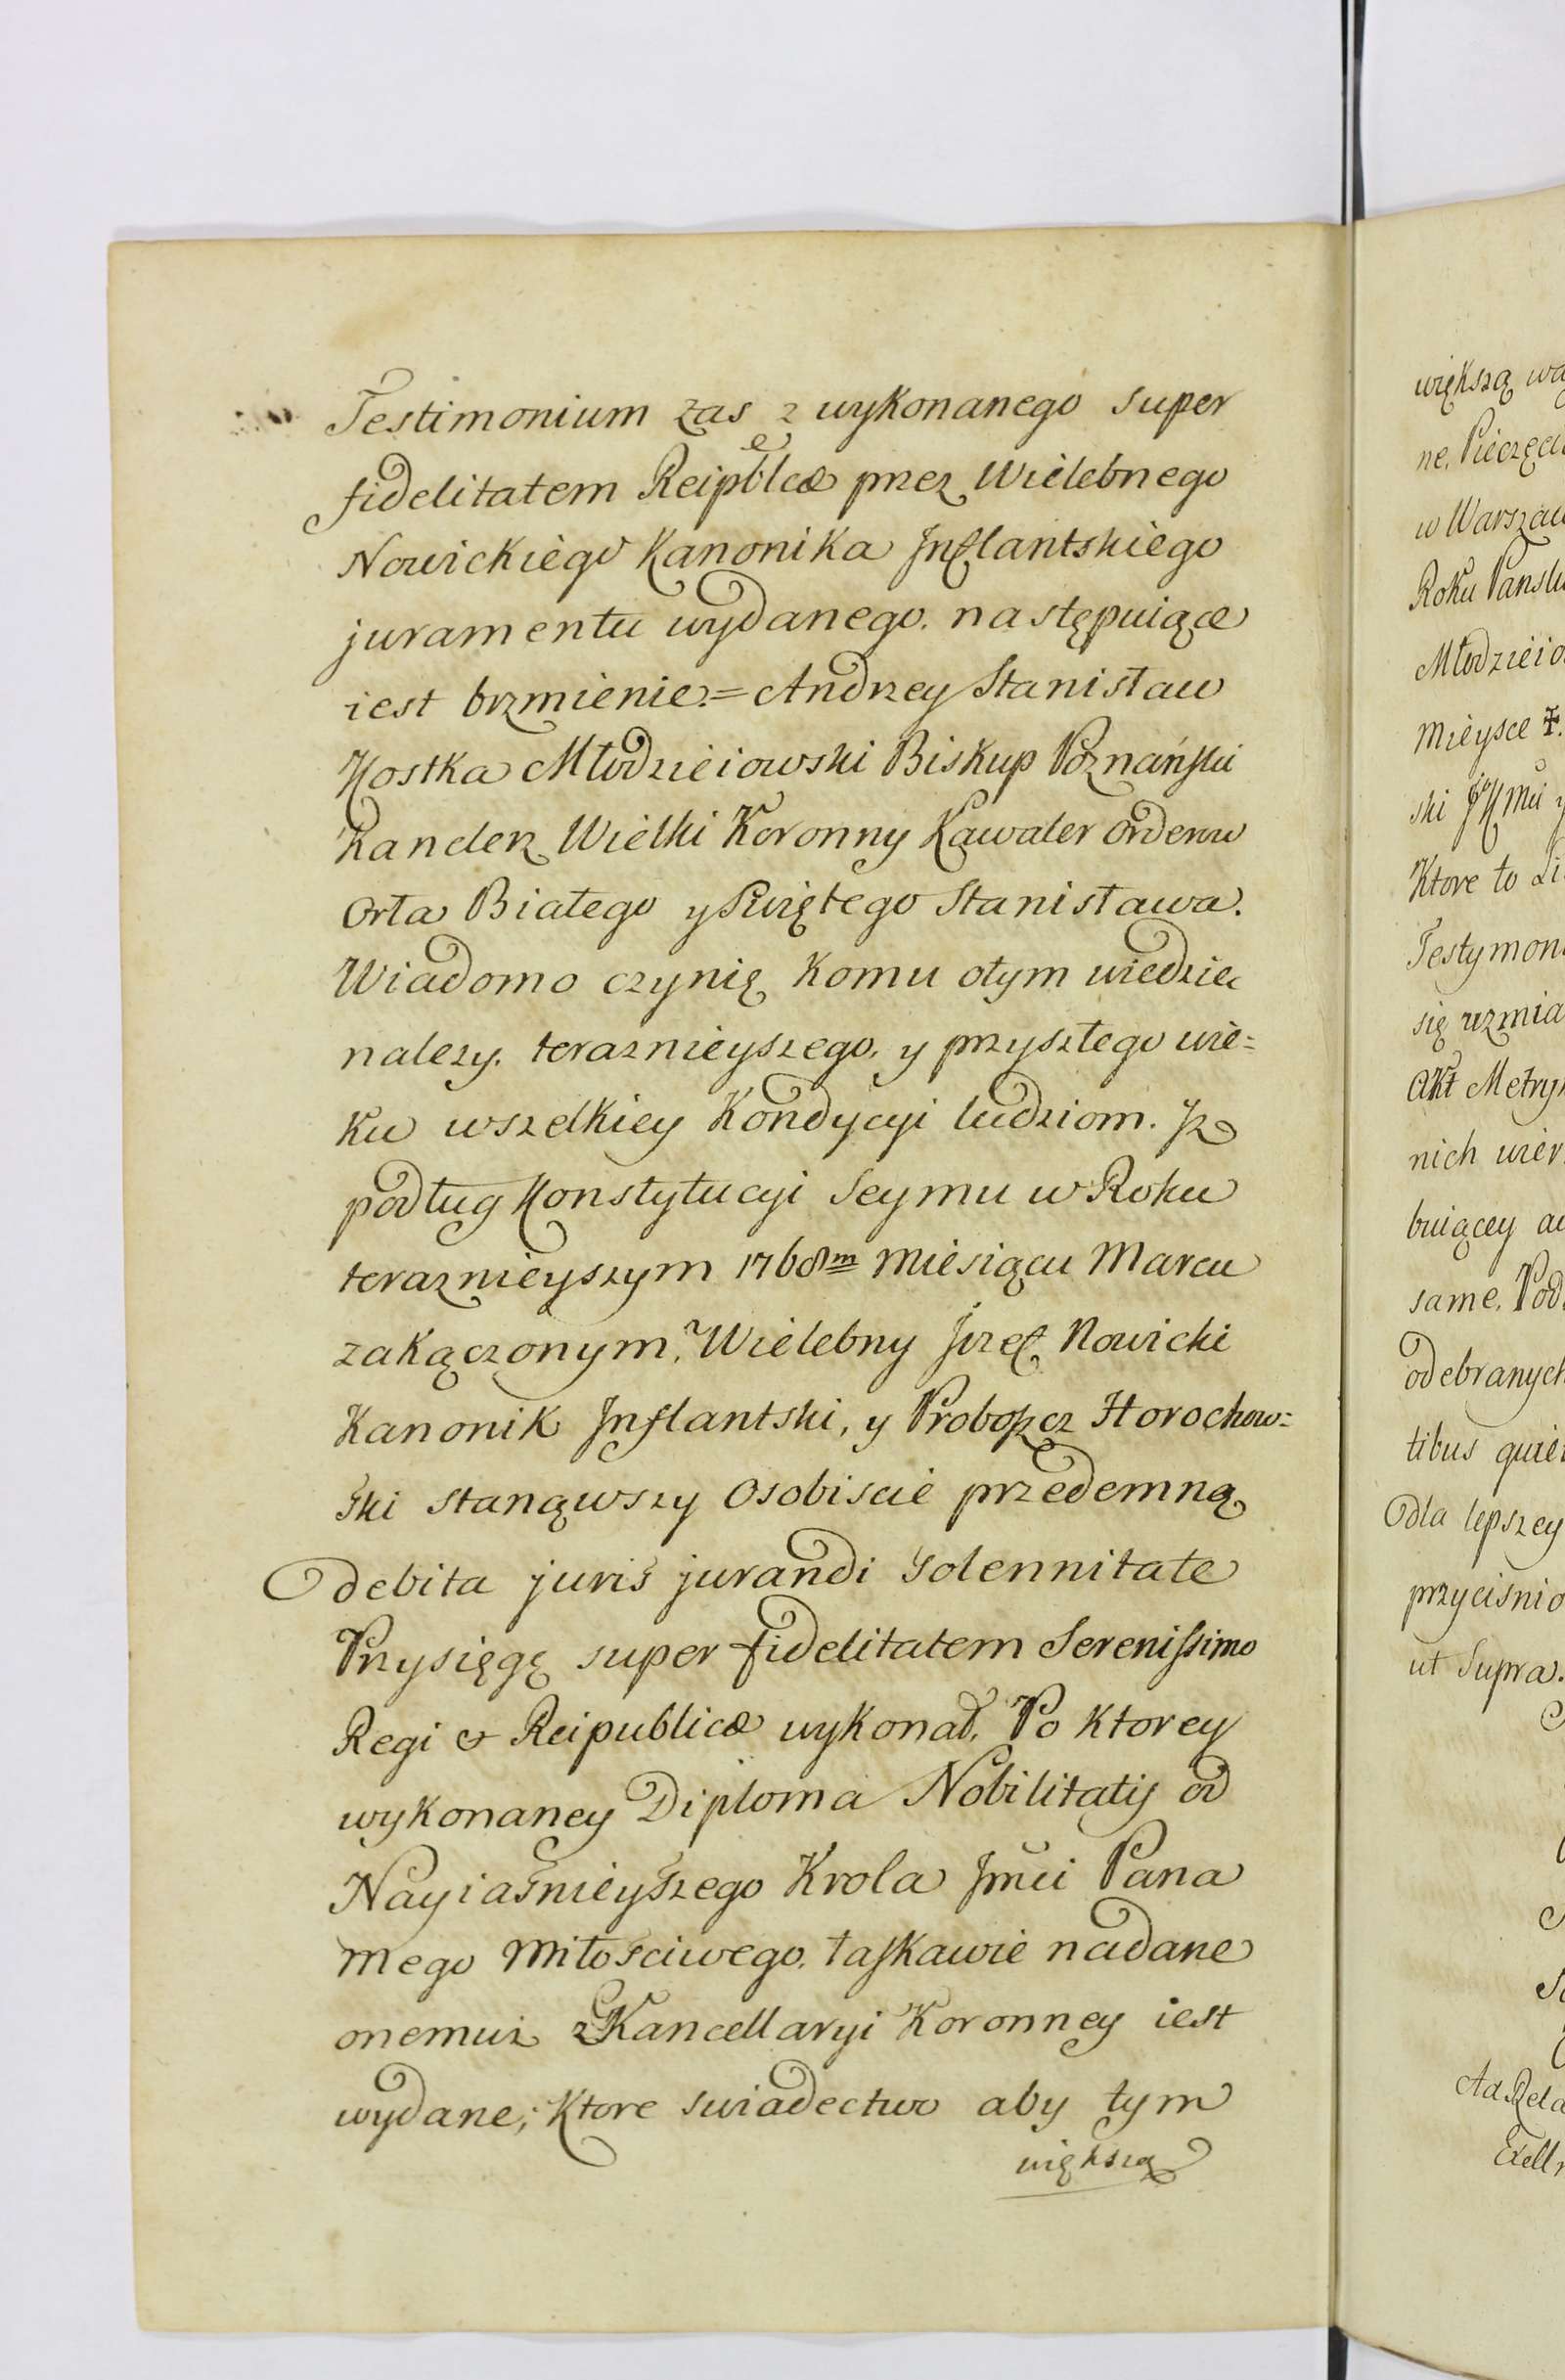 Testimonium zas z wykonanego super
fidelitatem Reipblcæ przez Wielebnego
Nowickiego Kanonika Inflantskiego
juramentu wydanego. następuiące
iest brzmienie. = Andrzey Stanisław
Kostka Młodzieiowski Biskup Poznański
Kanclerz Wielki Koronny Kawaler Orderow
Orła Białego y Swiętego Stanisława.
Wiadomo czynię Komu otym wiedziec
nalezy. teraznieyszego. y przyszłego wie=
ku wszelkiey Kondycyi ludziom. Iz
podług Konstytucyi Seymu w Roku
teraznieyszym 1768m Miesiącu Marcu
zakączonym. Wielebny Jozef Nowicki
Kanonik Inflantski, y Proboszcz Horochow=
ski stanąwszy Osobiscie przedemną
debita juris jurandi Solennitate
Przysięgę super fidelitatem Serenissimo
Regi & Reipublicæ wykonał. Po ktorey
wykonaney Diploma Nobilitatis od
Nayiaśnieyszego Krola Jmci Pana
Mego Miłościwego. łaskawie nadane
onemuż z Kancellaryi Koronney iest
wydane; Ktore swiadectwo aby tym
większą
większą
ne. Pieczęci
w Warszaw
Roku Pansk
Młodzieio
Mieysce
ski JKMci y
Ktore to Li
Testymon
się rzmia
Akt Metryk
nich wier
buiącey au
same. Pod
odebranych
tibus quie
dla lepszey
przycisnio
ut Supra.
Ad Rela
Excell